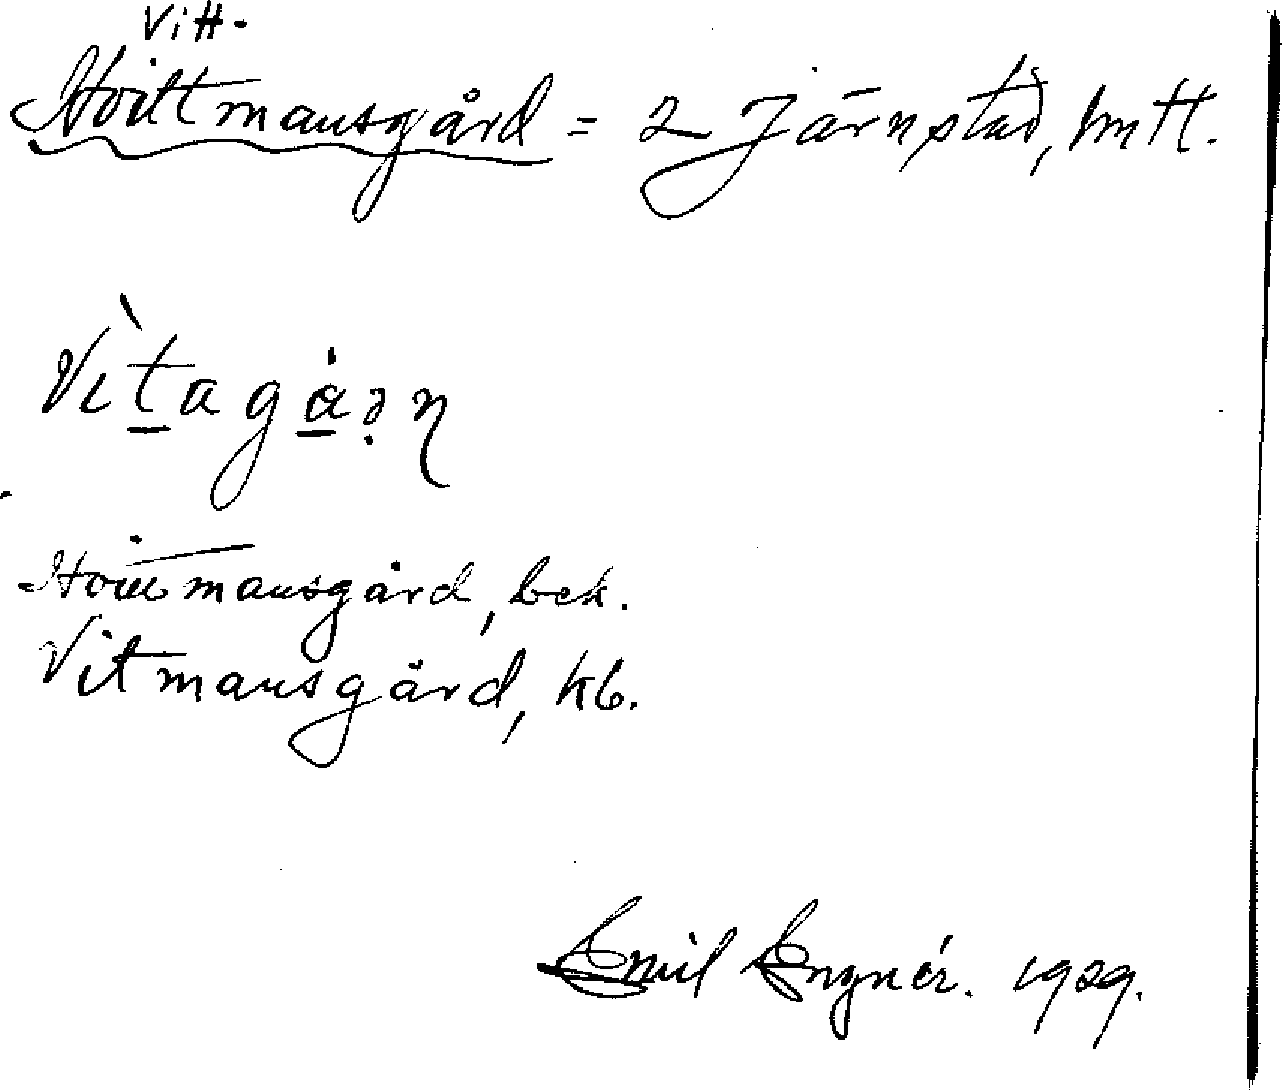 Vitt-
Hvittmansgård = 2 Järnstad, mtl.
Vìtagȧṇ
Hvittmansgård, bek.
Vitmansgård, kb.
Emil Engnér. 1929.